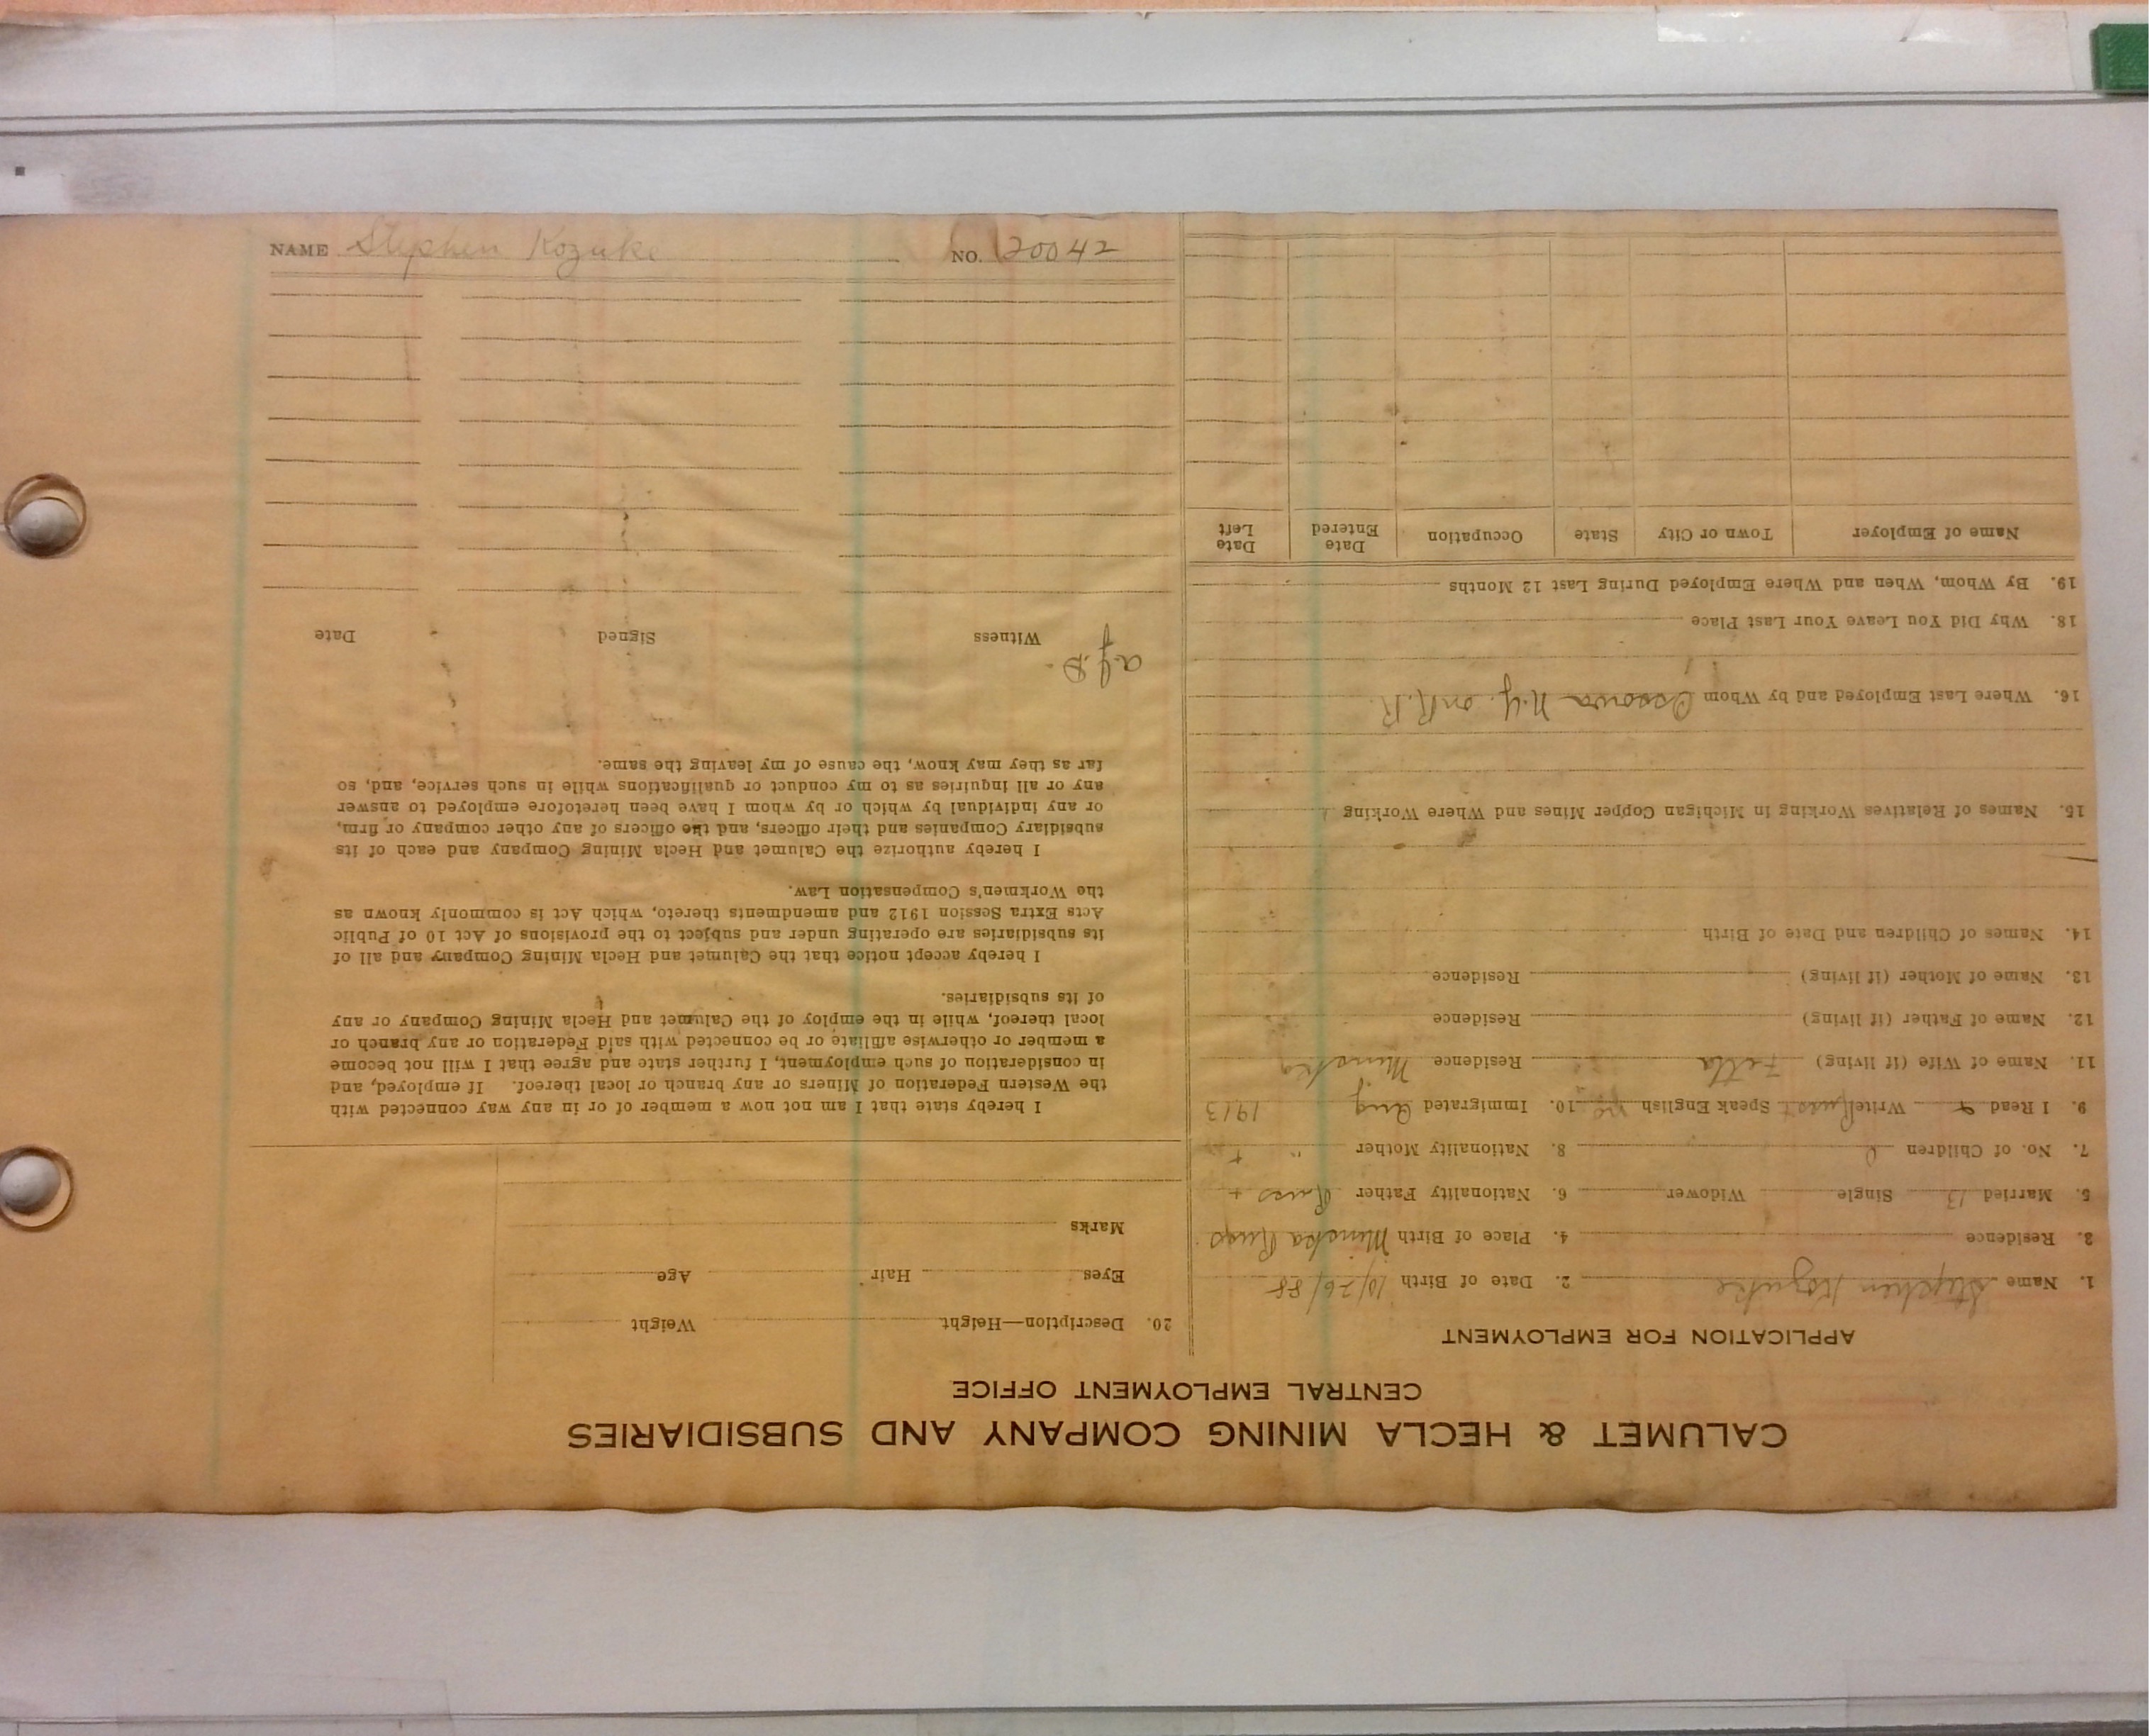 CALUMET & HECLA MINING COMPANY AND SUBSIDIARIES
CENTRAL EMPLOYMENT OFFICE
APPLICATION FOR EMPLOYMENT
1. Name Stephen Kozuke 2. Date of Birth 10/26/88
3. Residence 4. Place of Birth Minska Russ
5. Married 13 Single Widower 6. Nationality Father Russ +
7. No. of Children 8. Nationality Mother " +
9. I Read & Write Russ Speak English no 10. Immigrated Aug 1913
11. Name of Wife (if living) Fetla Residence Minska
12. Name of Father (if living) Residence
13. Name of Mother (if living) Residence
14. Names of Children and Date of Birth
15. Names of Relatives Working in Michigan Copper Mines and Where Working
16. Where Last Employed and by Whom N.Y. on R.R.
18. Why Did You Leave Your Last Place
19. By Whom, When and Where Employed During Last 12 Months
Name of Employer Town or City State Occupation Date Entered Date Left
20. Description—Height Weight
Eyes Hair Age
Marks
I hereby state that I am not now a member of or in any way connected with
the Western Federation of Miners or any branch or local thereof. If employed, and
in consideration of such employment, I further state and agree that I will not become
a member or otherwise affiliate or be connected with said Federation or any branch or
local thereof, while in the employ of the Calumet and Hecla Mining Company or any
of its subsidiaries.
I hereby accept notice that the Calumet and Hecla Mining Company and all of
its subsidiaries are operating under and subject to the provisions of Act 10 of Public
Acts Extra Session 1912 and amendments thereto, which Act is commonly known as
the Workmen's Compensation Law.
I hereby authorize the Calumet and Hecla Mining Company and each of its
subsidiary Companies and their officers, and the officers of any other company or firm,
or any individual by which or by whom I have been heretofore employed to answer
any or all inquiries as to my conduct or qualifications while in such service, and, so
far as they may know, the cause of my leaving the same.
Witness Signed Date
NAME Stephen Kozuke NO. 20042